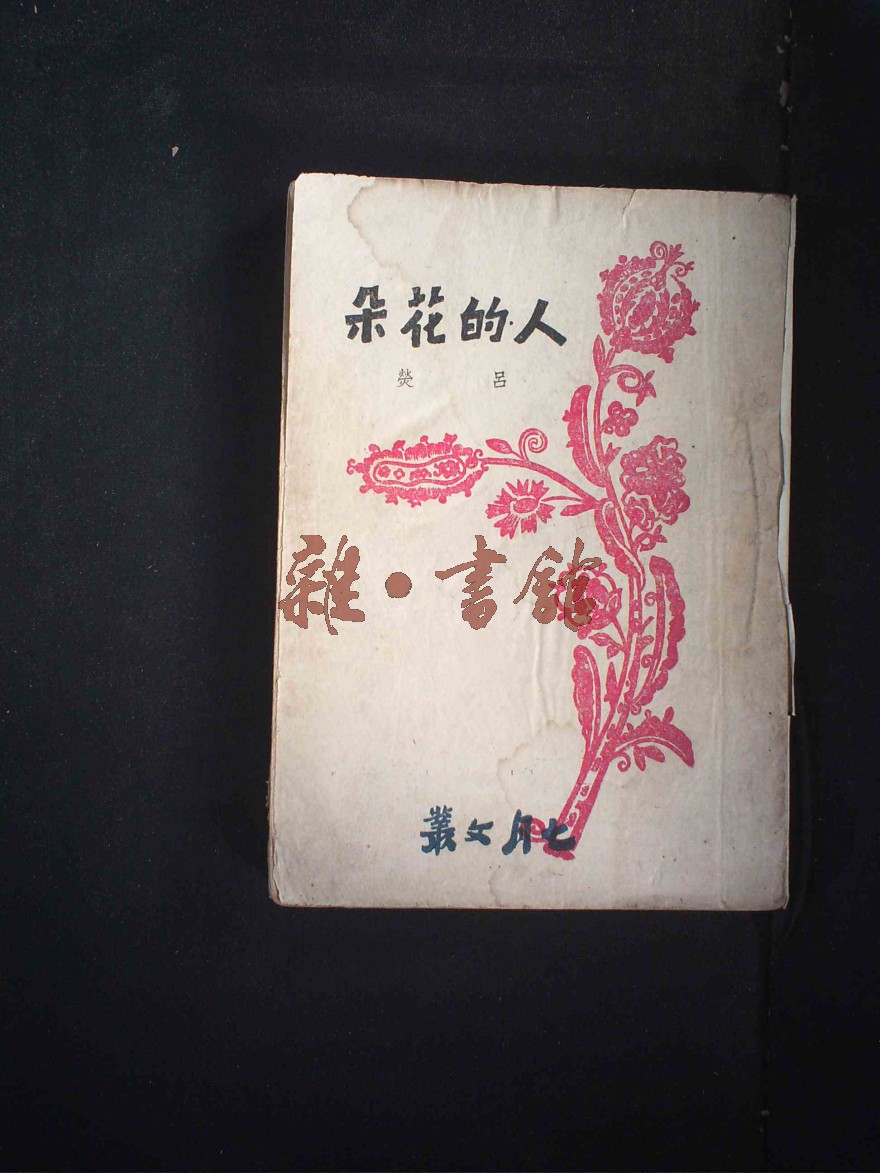 人的花朵
呂熒
雜·書館
七月文叢